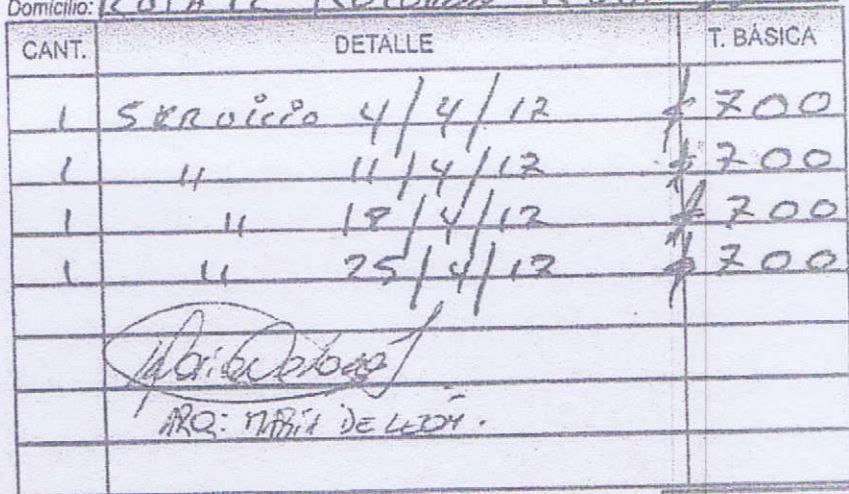 Domicilio: RUTA 12
CANT. DETALLE T. BÁSICA
1 Servicio 4/4/12 $ 700
1 " 11/4/12 $ 700
1 " 18/4/12 $ 700
1 " 25/4/12 $ 700
ARQ: MARÍA DE LEÓN.